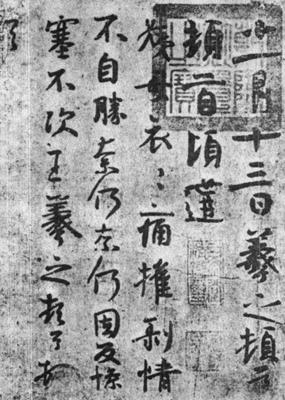 十一月十三日羲之頓首
頓首頃遘
姨母哀〻痛摧剝情
不自勝奈何奈何因反慘
塞不次王羲之頓首頓首